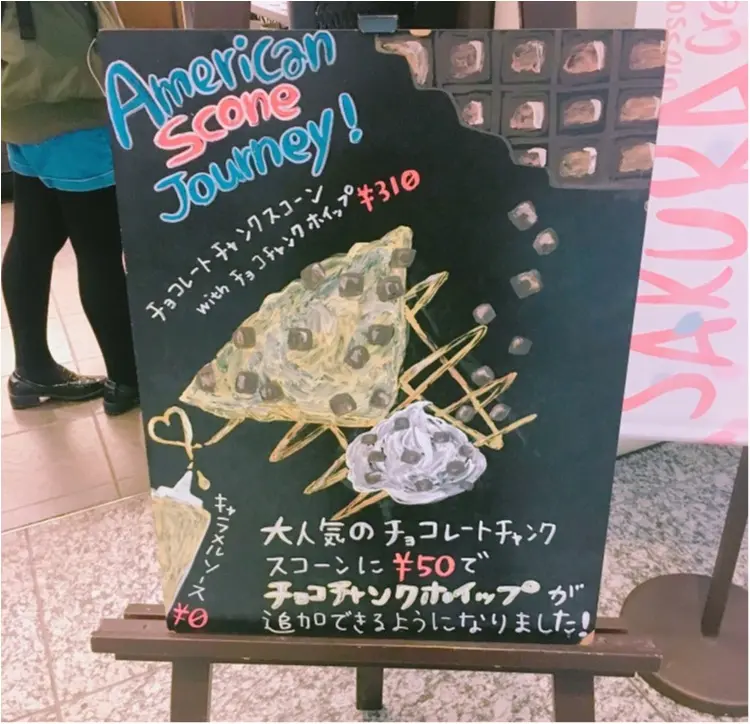 American
Scone
Journey!
チョコレートチャンクスコーン ¥310
with チョコチャンクホイップ
キャラメルソース
¥0
大人気の チョコレートチャンク
スコーンに ¥50で
チョコチャンクホイップが
追加できるようになりました!
SAKURA